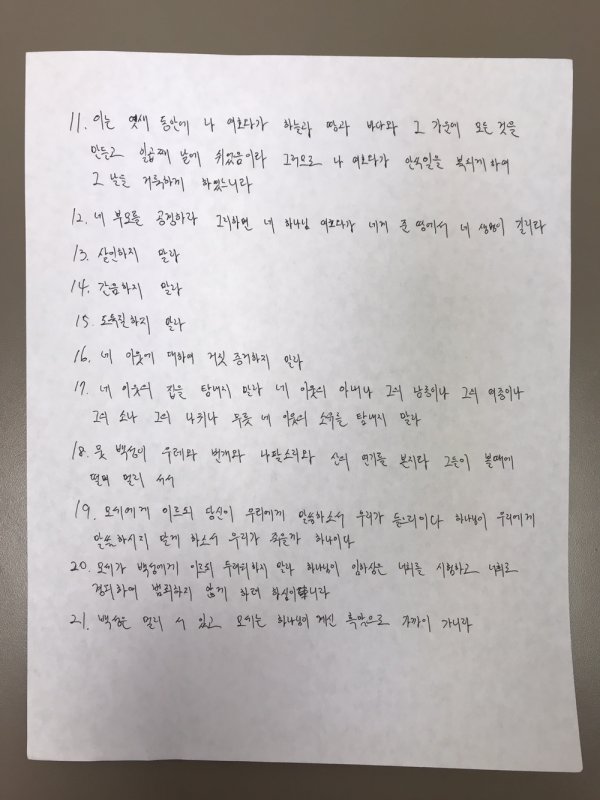 11. 이는 엿새 동안에 나 여호와가 하늘과 땅과 바다와 그 가운데 모든 것을
만들고 일곱째 날에 쉬었음이라 그러므로 나 여호와가 안식일을 복되게 하여
그 날을 거룩하게 하였느니라
12. 네 부모를 공경하라 그리하면 네 하나님 여호와가 네게 준 땅에서 네 생명이 길리라
13. 살인하지 말라
14. 간음하지 말라
15. 도둑질하지 말라
16. 네 이웃에 대하여 거짓 증거하지 말라
17. 네 이웃의 집을 탐내지 말라 네 이웃의 아내나 그의 남종이나 그의 여종이나
그의 소나 그의 나귀나 무릇 네 이웃의 소유를 탐내지 말라
18. 뭇 백성이 우레와 번개와 나팔소리와 산의 연기를 본지라 그들이 볼때에
떨며 멀리 서서
19. 모세에게 이르되 당신이 우리에게 말씀하소서 우리가 들으리이다 하나님이 우리에게
말씀하시지 말게 하소서 우리가 죽을까 하나이다
20. 모세가 백성에게 이르되 두려워하지 말라 하나님이 임하심은 너희를 시험하고 너희로
경외하여 범죄하지 않게 하려 하심이니라
21. 백성은 멀리 서 있고 모세는 하나님이 계신 흑암으로 가까이 가니라